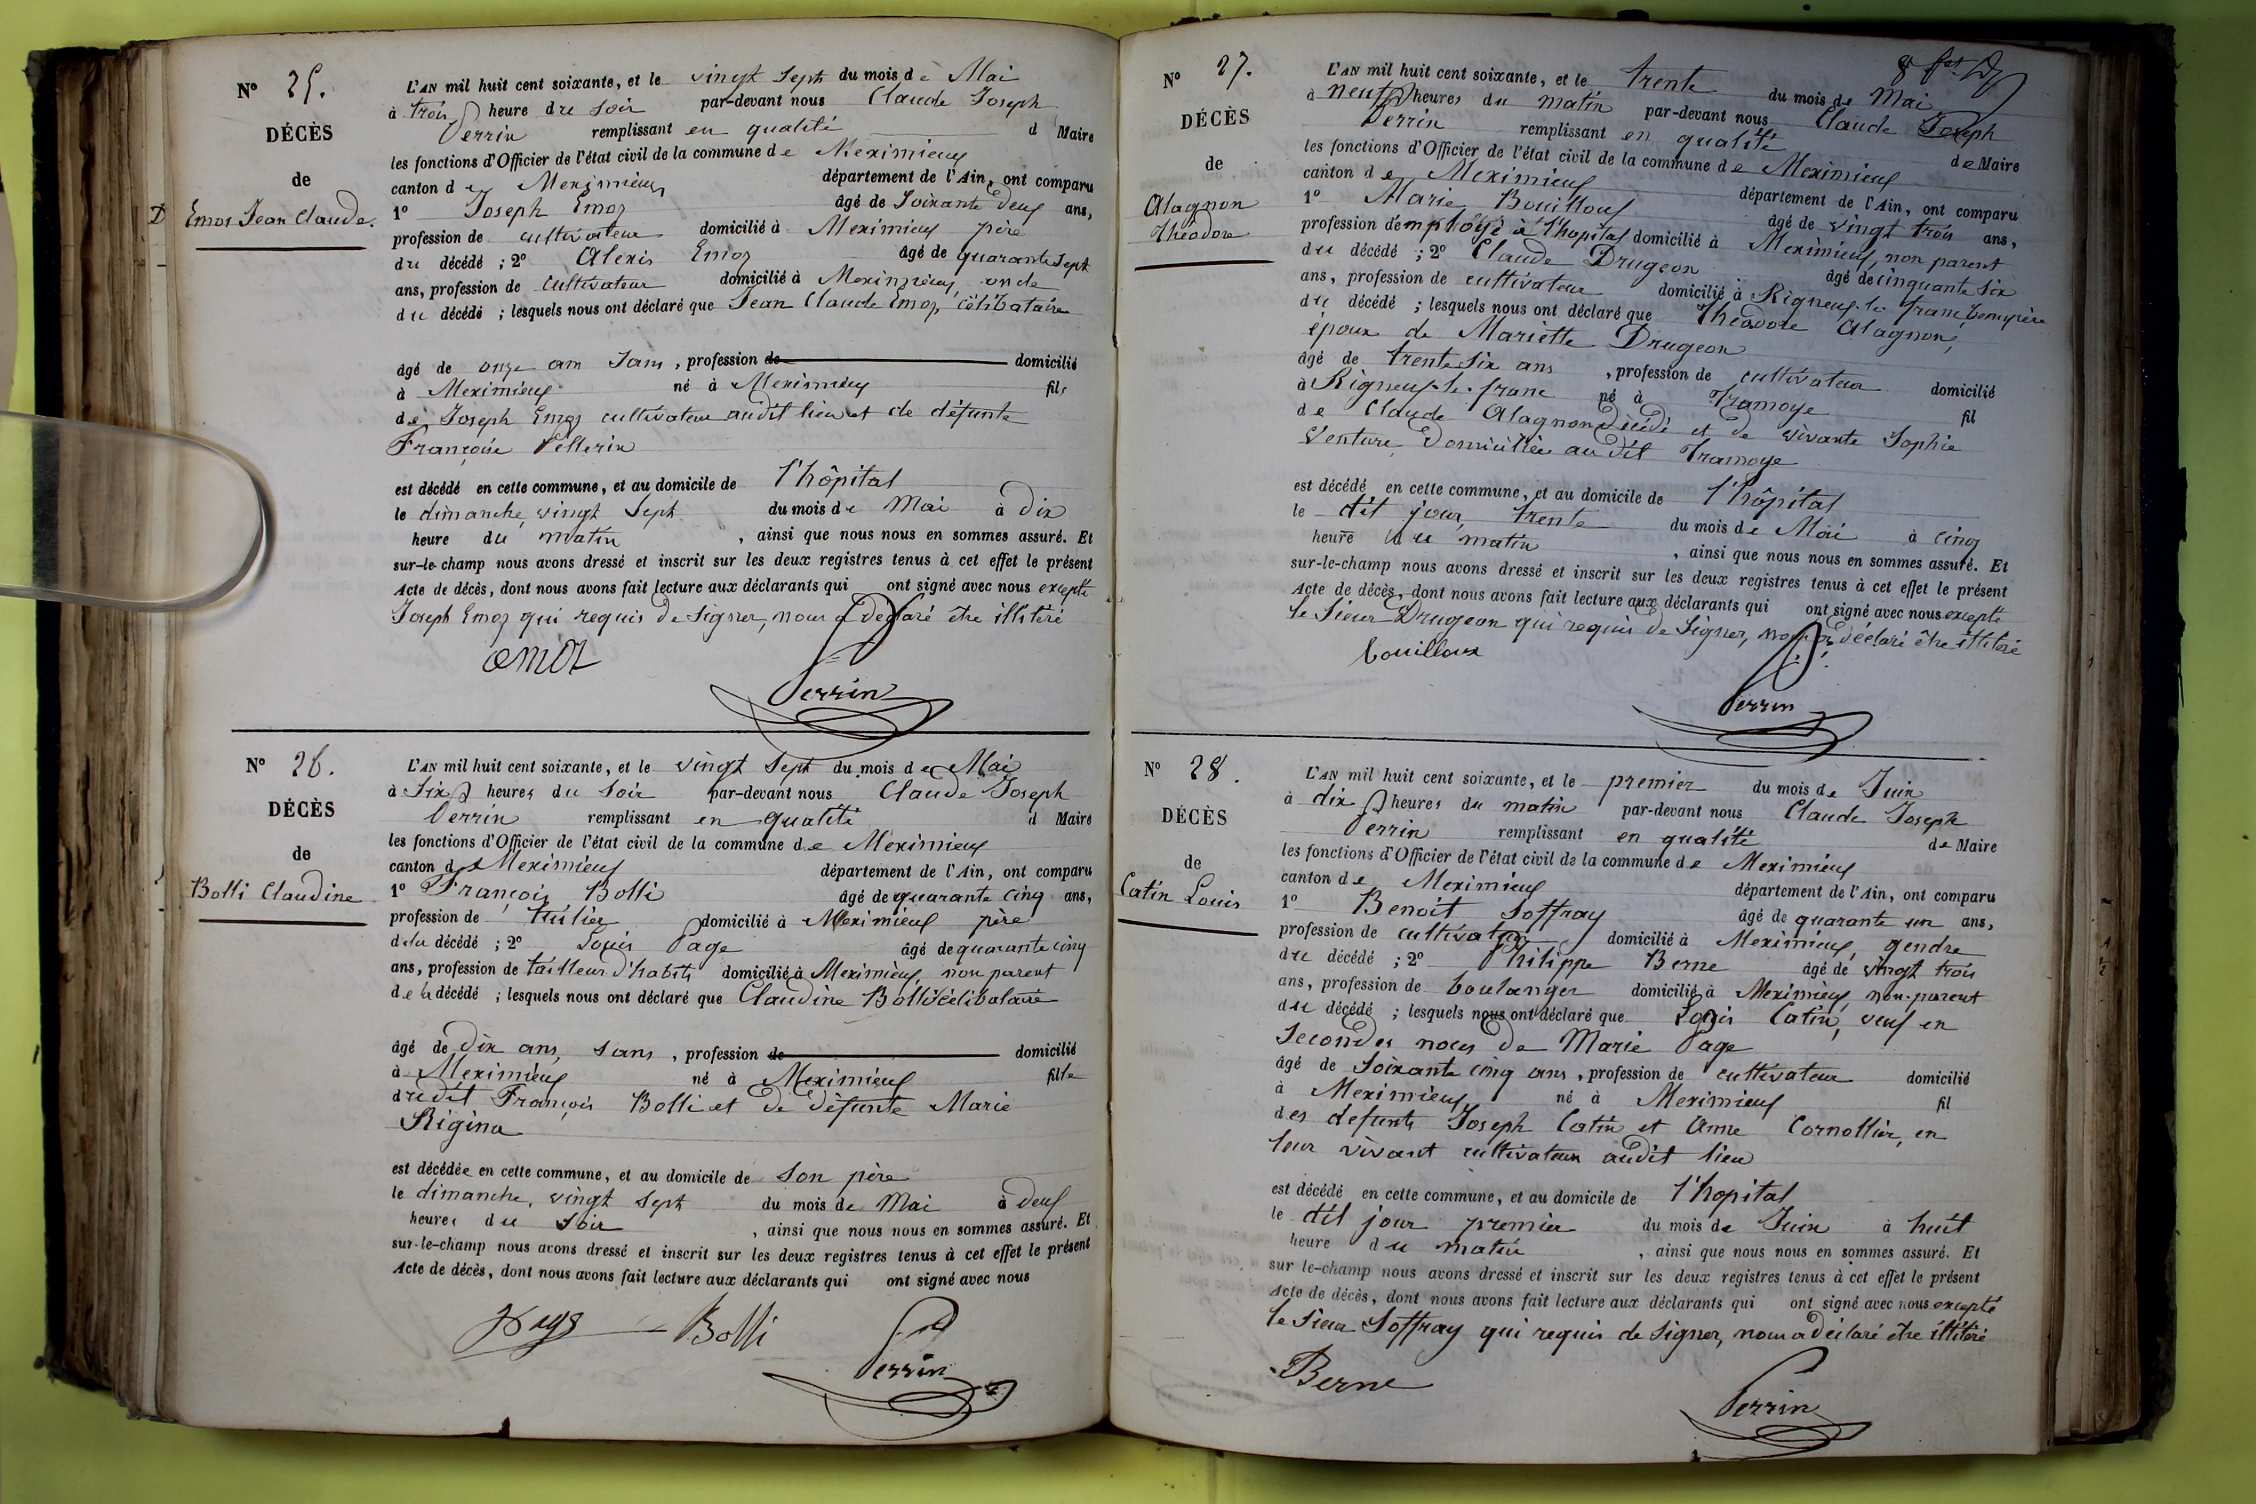 N° 25.
DÉCÈS
de
Emoz Jean Claude.
L'AN mil huit cent soixante, et le vingt sept du mois de Mai
à trois heure du soir par-devant nous Claude Joseph
Perrin remplissant en qualité d Maire
les fonctions d'Officier de l'état civil de la commune de Meximieux
canton de Meximieux département de l'Ain, ont comparu
1° Joseph Emoz âgé de Soixante deux ans,
profession de cultivateur domicilié à Meximieux père
du décédé ; 2° Alexis Emoz âgé de quarante sept
ans, profession de cultivateur domicilié à Meximieux, oncle
du décédé ; lesquels nous ont déclaré que Jean Claude Emoz, célibataire
âgé de onze ans sans , profession de domicilié
à Meximieux né à Meximieux fils
de Joseph Emoz cultivateur audit lieu et de défunte
Françoise Pellerin
est décédé en cette commune, et au domicile de l'hôpital
le dimanche, vingt sept du mois de Mai à dix
heure du matin , ainsi que nous nous en sommes assuré. Et
sur-le-champ nous avons dressé et inscrit sur les deux registres tenus à cet effet le présent
Acte de décès, dont nous avons fait lecture aux déclarants qui ont signé avec nous excepté
Joseph Emoz qui requis de signer, nous a déclaré être illitéré
emoz
Perrin
N° 26.
DÉCÈS
de
Bolli Claudine
L'AN mil huit cent soixante, et le vingt sept du mois de Mai
à six heures du soir par-devant nous Claude Joseph
Perrin remplissant en qualité d Maire
les fonctions d'Officier de l'état civil de la commune de Meximieux
canton de Meximieux département de l'Ain, ont comparu
1° François Bolli âgé de quarante cinq ans,
profession de tuilier domicilié à Meximieux père
dela décédé ; 2° Louis Page âgé de quarante cinq
ans, profession de tailleur d'habits domicilié à Meximieux, non parent
de la décédé ; lesquels nous ont déclaré que Claudine Bolli célibataire
âgé de dix ans, sans , profession de domicilié
à Meximieux né à Meximieux fille
dudit François Bolli et de défunte Marie
Rigina
est décédée en cette commune, et au domicile de son père
le dimanche, vingt sept du mois de Mai à deux
heures du soir , ainsi que nous nous en sommes assuré. Et
sur-le-champ nous avons dressé et inscrit sur les deux registres tenus à cet effet le présent
Acte de décès, dont nous avons fait lecture aux déclarants qui ont signé avec nous
Bolli
Perrin
N° 27.
DÉCÈS
de
Alagnon
Théodore
L'AN mil huit cent soixante, et le trente du mois de Mai
à neuf heures du matin par-devant nous Claude Joseph
Perrin remplissant en qualité de Maire
les fonctions d'Officier de l'état civil de la commune de Meximieux
canton de Meximieux département de l'Ain, ont comparu
1° Marie Bouilloux âgé de vingt trois ans,
profession d'employé à l'hôpital domicilié à Meximieux, non parent
du décédé ; 2° Claude Drugeon âgé de cinquante six
ans, profession de cultivateur domicilié à Rigneux-le-franc, beaupère
du décédé ; lesquels nous ont déclaré que Théodore Alagnon,
époux de Mariette Drugeon
âgé de trente six ans , profession de cultivateur domicilié
à Rigneux-le-franc né à Tramoye fil
de Claude Alagnon décédé et de vivante Sophie
Venture, domiciliée au dit Tramoye
est décédé en cette commune, et au domicile de l'hôpital
le dit jour, trente du mois de Mai à cinq
heure du matin , ainsi que nous nous en sommes assuré. Et
sur-le-champ nous avons dressé et inscrit sur les deux registres tenus à cet effet le présent
Acte de décès, dont nous avons fait lecture aux déclarants qui ont signé avec nous excepté
le Sieur Drugeon qui requis de signer, nous a déclaré être illitéré
bouilloux
Perrin
N° 28.
DÉCÈS
de
Catin Louis
L'AN mil huit cent soixante, et le premier du mois de Juin
à dix heures du matin par-devant nous Claude Joseph
Perrin remplissant en qualité de Maire
les fonctions d'Officier de l'état civil de la commune de Meximieux
canton de Meximieux département de l'Ain, ont comparu
1° Benoit Soffray âgé de quarante un ans,
profession de cultivateur domicilié à Meximieux, gendre
du décédé ; 2° Philippe Berne âgé de vingt trois
ans, profession de boulanger domicilié à Meximieux, non-parent
du décédé ; lesquels nous ont déclaré que Louis Catin, veuf en
secondes noces de Marie Page
âgé de soixante cinq ans, profession de cultivateur domicilié
à Meximieux né à Meximieux fil
des défunts Joseph Catin et Anne Cornollier, en
leur vivant cultivateurs audit lieu
est décédé en cette commune, et au domicile de l'hopital
le dit jour premier du mois de Juin à huit
heure du matin , ainsi que nous nous en sommes assuré. Et
sur le-champ nous avons dressé et inscrit sur les deux registres tenus à cet effet le présent
Acte de décès, dont nous avons fait lecture aux déclarants qui ont signé avec nous excepté
le sieur Soffray qui requis de signer, nous a déclaré être illitéré
Berne
Perrin